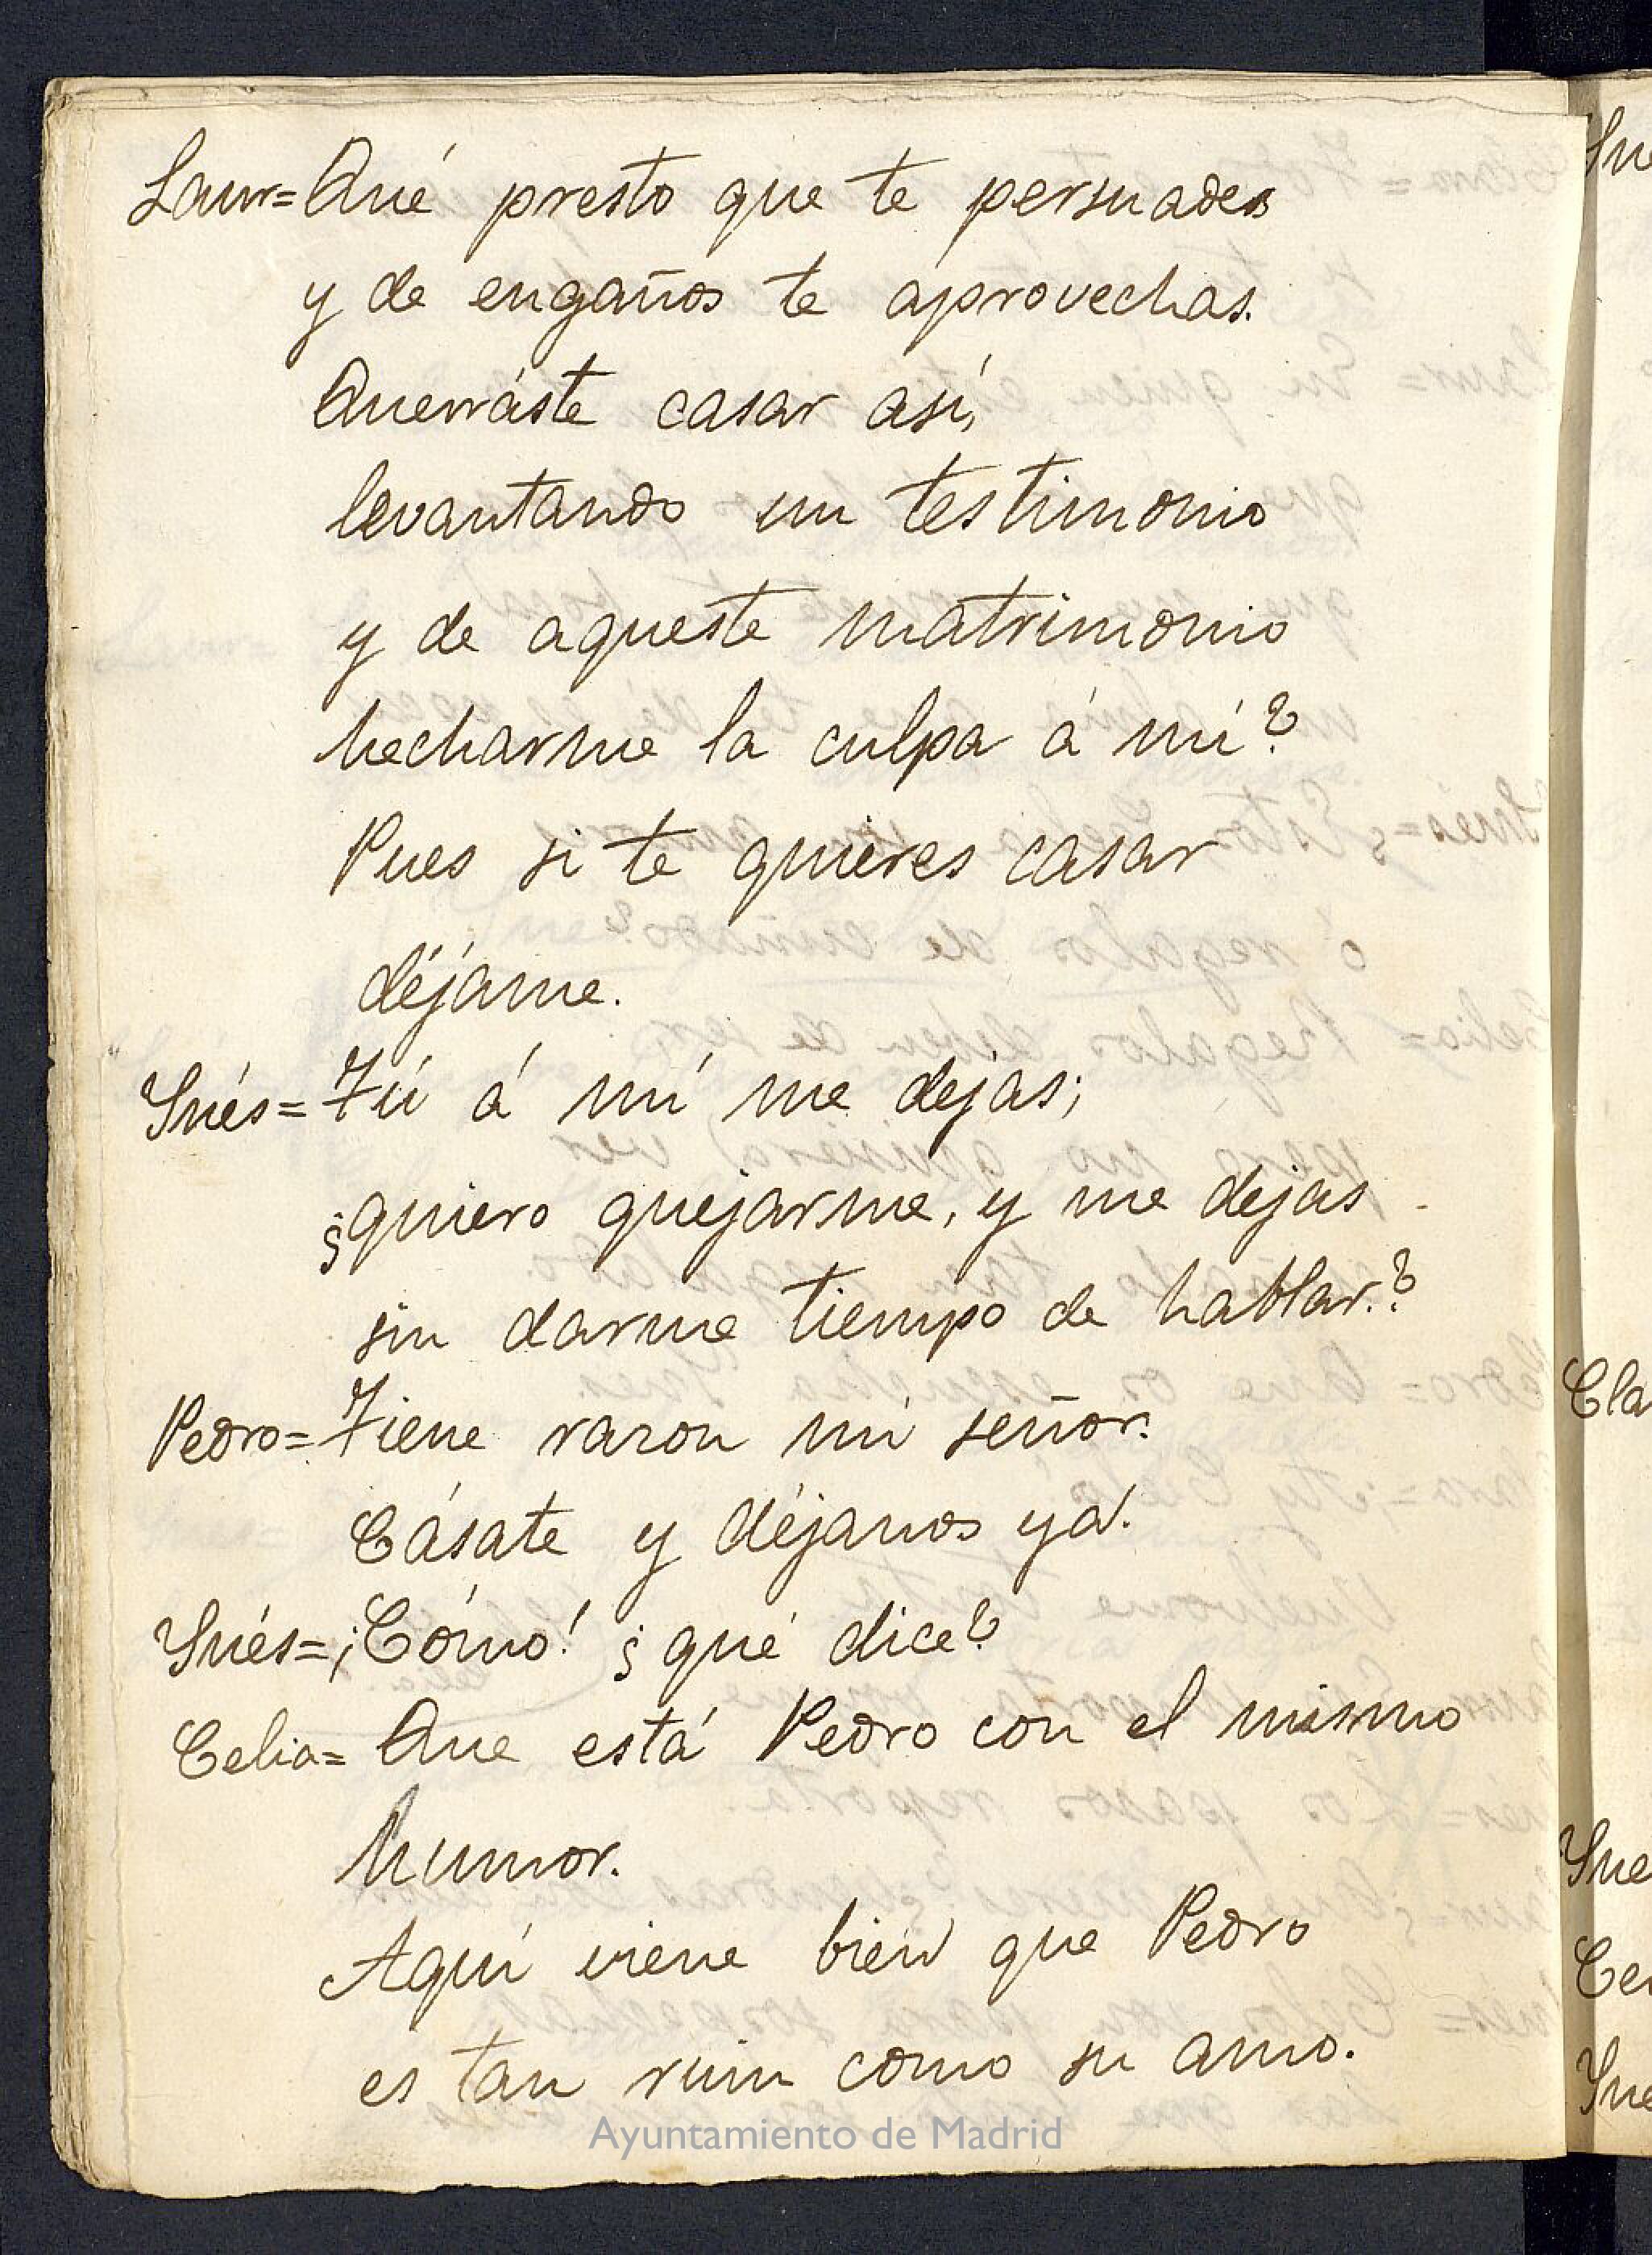 Laur= Qué presto que te persuades
y de engaños te aprovechas.
Querráste casar así,
levantando un testimonio
y de aqueste matrimonio
hecharme la culpa á mí?
Pues si te quieres casar
déjáme.
Inés= Tú á mí me dejas;
¿quiero quejarme, y me dejas
sin darme tiempo de hablar.?
Pedro= Tiene razon mi señor.
Cásate y déjanos ya.
Inés= ¡Cómo! ¿qué dice?
Celia= Que está Pedro con el mismo
humor.
Aquí viene bien que Pedro
es tan ruin como su amo.
Ayuntamiento de Madrid